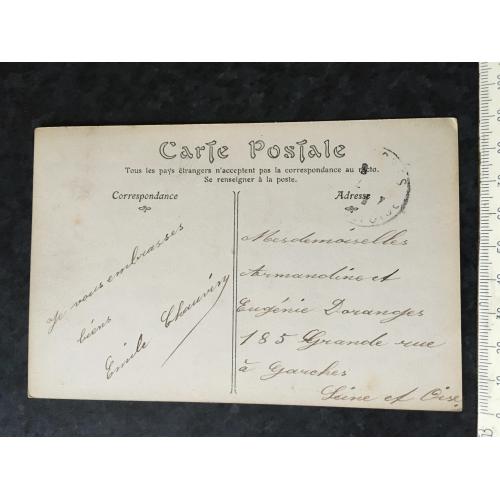 Carte Postale
Tous les pays étrangers n'acceptent pas la correspondance au recto.
Se renseigner à la poste.
Correspondance
Adresse
Je vous embrasses
biens
Emile Chauviry
Mesdemoiselles
Armandine et
Eugénie Doranges
185 Grande rue
à Garches
Seine et Oise